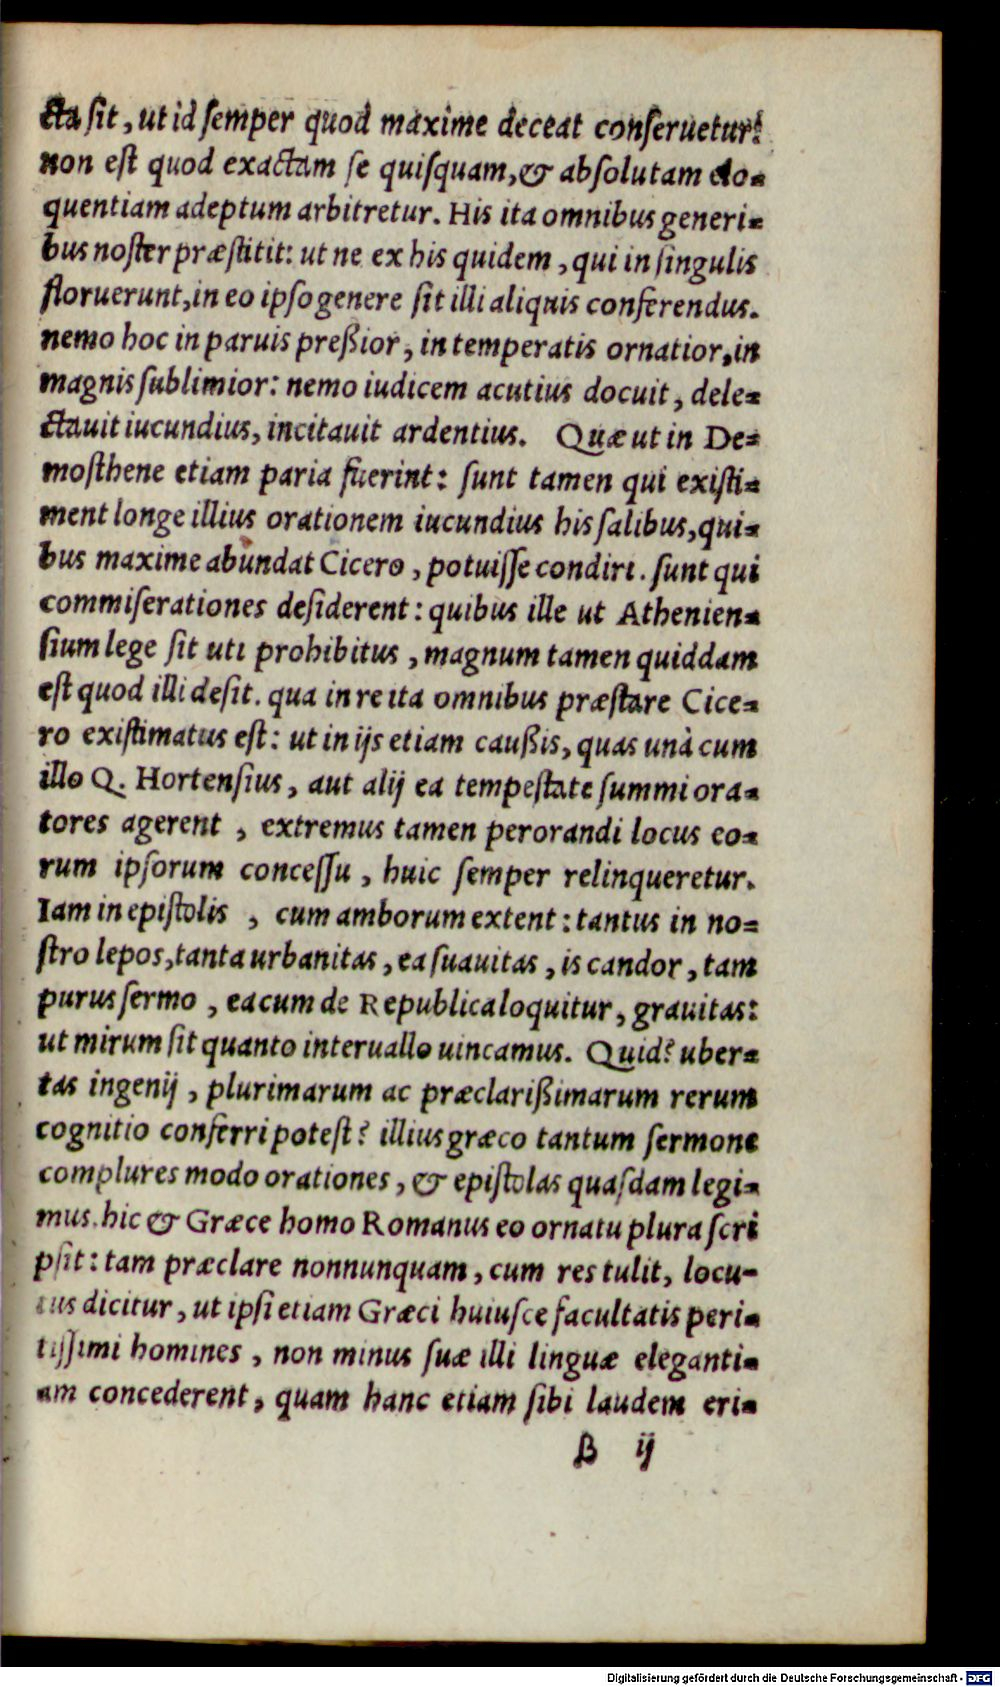 cta ſit, ut id ſemper quod maxime deceat conſeruetur?
non est quod exactam ſe quiſquam, & abſolutam elo-
quentiam adeptum arbitretur. His ita omnibus generi-
bus noſter præſtitit: ut ne ex his quidem, qui in ſingulis
floruerunt, in eo ipſo genere ſit illi aliquis conferendus.
nemo hoc in paruis preßior, in temperatis ornatior, in
magnis ſublimior: nemo iudicem acutius docuit, dele-
ctauit iucundius, incitauit ardentius. Quæ ut in De-
moſthene etiam paria fuerint: ſunt tamen qui exiſti-
ment longe illius orationem iucundius his ſalibus, qui-
bus maxime abundat Cicero, potuiſſe condiri. ſunt qui
commiſerationes deſiderent: quibus ille ut Athenien-
ſium lege ſit uti prohibitus, magnum tamen quiddam
eſt quod illi deſit. qua in re ita omnibus præſtare Cice-
ro exiſtimatus eſt: ut in ijs etiam caußis, quas unà cum
illo Q. Hortenſius, aut alij ea tempeſtate ſummi ora-
tores agerent, extremus tamen perorandi locus eo-
rum ipſorum conceſſu, huic ſemper relinqueretur.
Iam in epiſtolis, cum amborum extent: tantus in no-
ſtro lepos, tanta urbanitas, ea ſuauitas, is candor, tam
purus ſermo, ea cum de Republica loquitur, grauitas:
ut mirum ſit quanto interuallo uincamus. Quid? uber-
tas ingenij, plurimarum ac præclarißimarum rerum
cognitio conferri poteſt? illius græco tantum ſermone
complures modo orationes, & epiſtolas quaſdam legi-
mus. hic & Græce homo Romanus eo ornatu plura ſcri
pſit: tam præclare nonnunquam, cum res tulit, locu-
tus dicitur, ut ipſi etiam Græci huiuſce facultatis peri-
tiſſimi homines, non minus ſuæ illi linguæ eleganti-
am concederent, quam hanc etiam ſibi laudem eri-
B ij
Digitalisierung gefördert durch die Deutsche Forschungsgemeinschaft - DFG